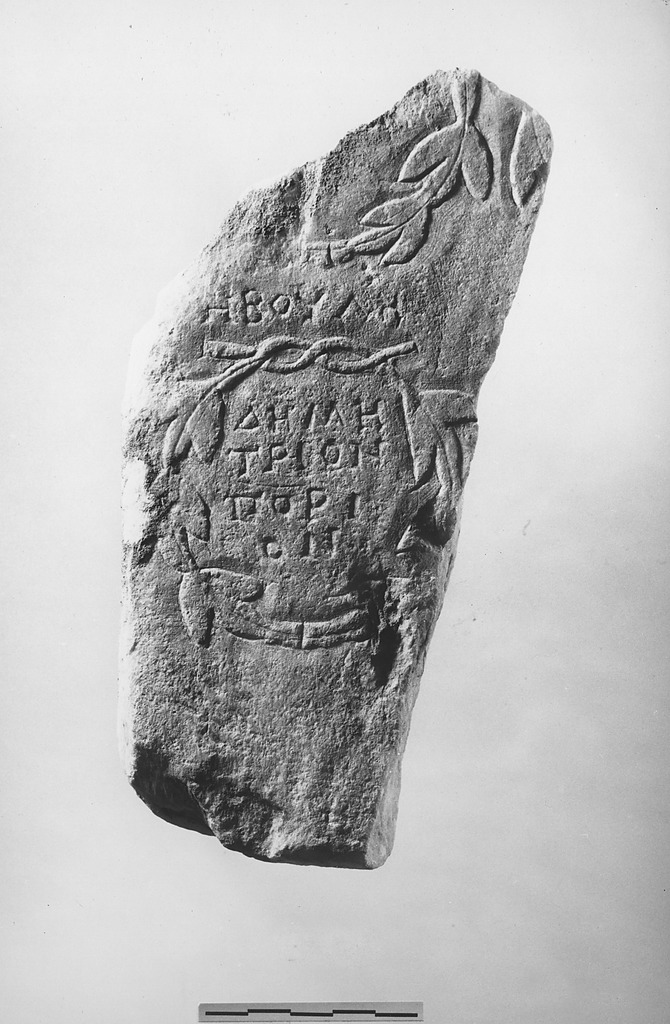 ΗΒΟΥΛΗ
ΔΗΜΗ
ΤΡΙΟΝ
ΠΟΡΙ
ΟΝ